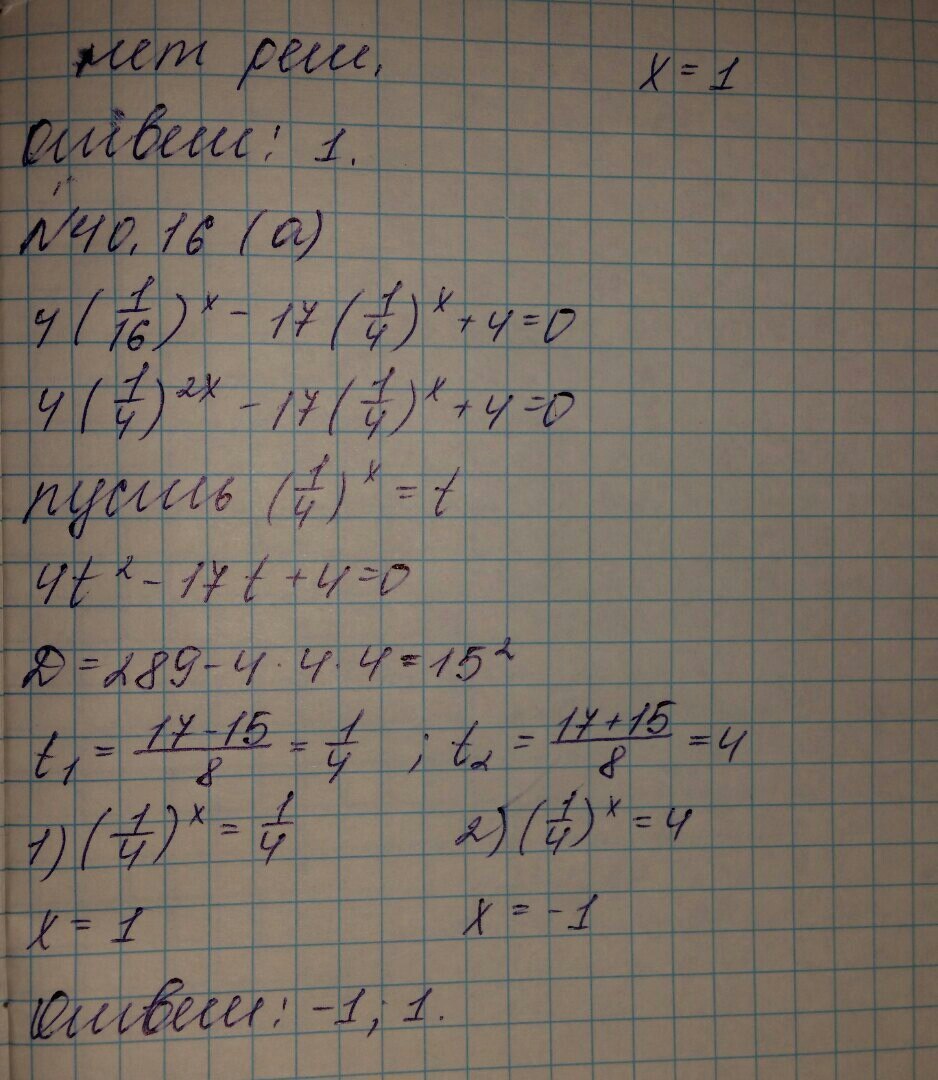 нет реш. x = 1
ответ: 1.
№40.16 (а)
4(1/16)^x - 17(1/4)^x + 4 = 0
4(1/4)^2x - 17(1/4)^x + 4 = 0
пусть (1/4)^x = t
4t² - 17t + 4 = 0
D = 289 - 4 · 4 · 4 = 15²
t₁ = (17 - 15)/8 = 1/4 ; t₂ = (17 + 15)/8 = 4
1) (1/4)^x = 1/4 2) (1/4)^x = 4
x = 1 x = -1
ответ: -1; 1.